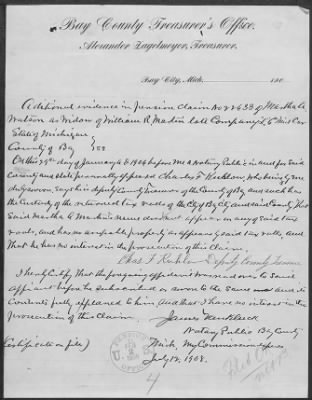 Bay County Treasurer's Office.
Alexander Zagelmeyer, Treasurer.
Bay City, Mich. 190
Aditional evidence in Pension Claim No 822633 of Martha A
Watson as Widow of William R. Martin late Company L, 6" Mich Cav
State of Michigan
County of Bay } SS
On this 29th day of January A D 1906 before me A Notary Public in and for Said
County and state personally appeared Charles F. who being by me
duly sworn, says he is deputy County Treasurer of the County of Bay and such has
the Custody of the returned tax roles of the City of Bay City and said County That
Said Martha A Name does not appear on any of said tax
roals, and has no property as appears by said tax rolls, and
that he has no interest in the prosecution of this Claim
Chas F Deputy County Treasurer
I hereby Certify that the foregoing affidavit was read over to said
affiant before he subscribed or sworn to the Same and its
Contents fully explained to him And that I have no interest in the
prosecution of this Claim
James
Notary Public Bay County
(Certificate on file) Mich. My Commission Expires
July 12, 1908.
PENSION
U.S.
OFFICE
4